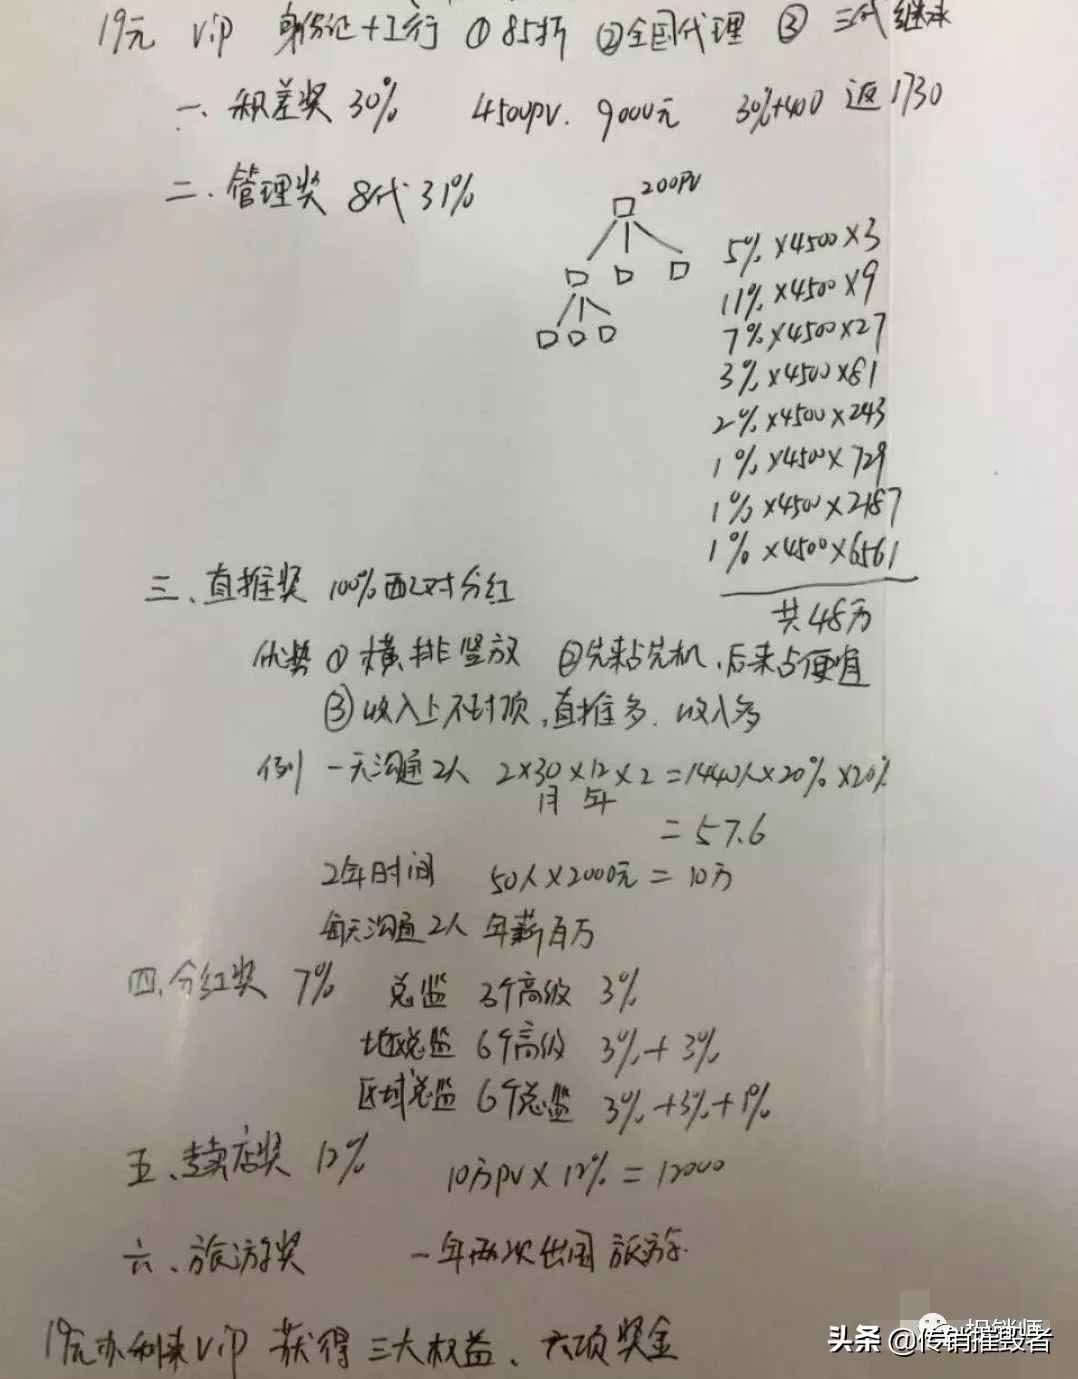 19元 VIP 身份证+工行 ①85折 ②全国代理 ③ 三代继承
一、积差奖 30% 4500PV. 9000元 30%+400 返1730
二.管理奖 8代31%
200PV
5%×4500×3
11%×4500×9
7%×4500×27
3%×4500×81
2%×4500×243
1%×4500×729
1%×4500×2187
1%×4500×6561
共48万
三、直推奖 100%配对分红
优势 ①横排竖放 ②先来占先机,后来占便宜
③收入上不封顶,直推多.收入多
例 一天沟通2人 2×30×12×2=1440人×20%×20%
月 年
=57.6
2年时间 50人×2000元=10万
每天沟通2人 年薪百万
四.分红奖 7% 总监 3个高级 3%
6个高级 3%+3%
区域总监 6个总监 3%+3%+1%
五、专卖店奖 12% 10万PV×12%=12000
六、旅游奖 一年两次出国旅游.
19元办 VIP 获得三大权益、六项奖金
报销师
头条@传销摧毁者